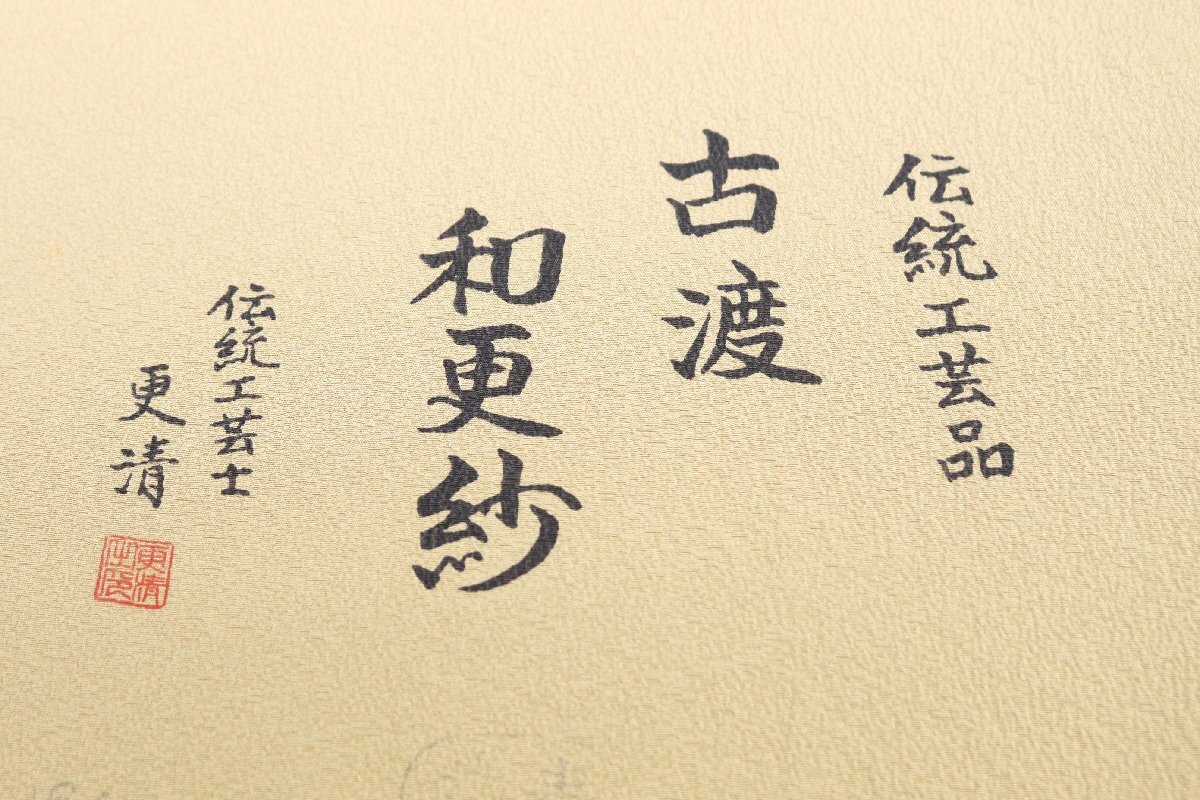 伝統工芸品
古渡
和更紗
伝統工芸士
更清
更清之印